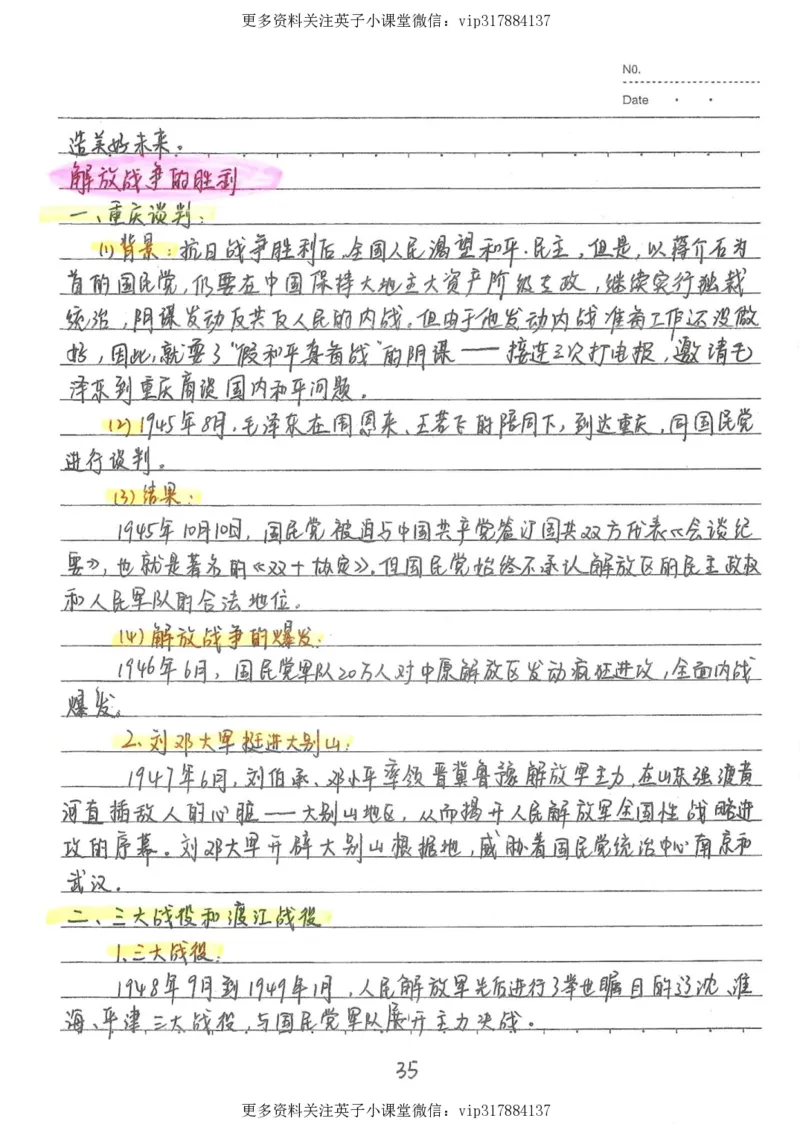 更多资料关注英子小课堂微信：vip317884137
N0.
Date
造美好未来。
解放战争的胜利
一、重庆谈判：
(1)背景：抗日战争胜利后，全国人民渴望和平、民主，但是，以蒋介石为
首的国民党，仍要在中国保持大地主大资产阶级专政，继续实行独裁
统治，阴谋发动反共反人民的内战。但由于他发动内战准备工作还没做
好，因此，就耍了“假和平真备战”的阴谋——接连三次打电报，邀请毛
泽东到重庆商谈国内和平问题。
(2)1945年8月，毛泽东在周恩来、王若飞的陪同下，到达重庆，同国民党
进行谈判。
(3)结果：
1945年10月10日，国民党被迫与中国共产党签订国共双方代表《会谈纪
要》，也就是著名的《双十协定》。但国民党始终不承认解放区的民主政权
和人民军队的合法地位。
(4)解放战争的爆发：
1946年6月，国民党军队20万人对中原解放区发动疯狂进攻，全面内战
爆发。
2.刘邓大军挺进大别山：
1947年6月，刘伯承、邓小平率领晋冀鲁豫解放军主力，在山东强渡黄
河直插敌人的心脏——大别山地区，从而揭开人民解放军全国性战略进
攻的序幕。刘邓大军开辟大别山根据地，威胁着国民党统治中心南京和
武汉。
二、三大战役和渡江战役
1.三大战役：
1948年9月到1949年1月，人民解放军先后进行了举世瞩目的辽沈、淮
海、平津三大战役，与国民党军队展开主力决战。
35
更多资料关注英子小课堂微信：vip317884137